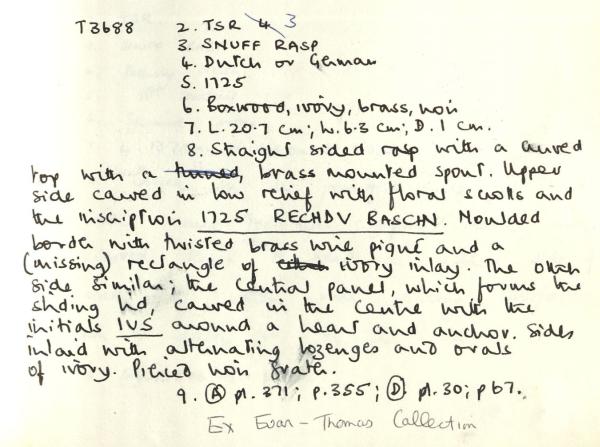 T3688 2. TSR 4 3
3. SNUFF RASP
4. Dutch or German
5. 1725
6. Boxwood, ivory, brass, iron
7. L. 20.7 cm; W. 6.3 cm; D. 1 cm.
8. Straight sided rasp with a curved
top with a turned, brass mounted spout. Upper
side carved in low relief with floral scrolls and
the inscription 1725 RECHDV BASCHN. Moulded
border with twisted brass wire piqué and a
(missing) rectangle of ivory inlay. The other
side similar; the central panel, which forms the
sliding lid, carved in the centre with the
initials IVS around a heart and anchor. Sides
inlaid with alternating lozenges and ovals
of ivory. Pierced iron grater.
9. (A) pl. 371; p. 355; (D) pl. 30; p 67.
Ex Evan-Thomas Collection